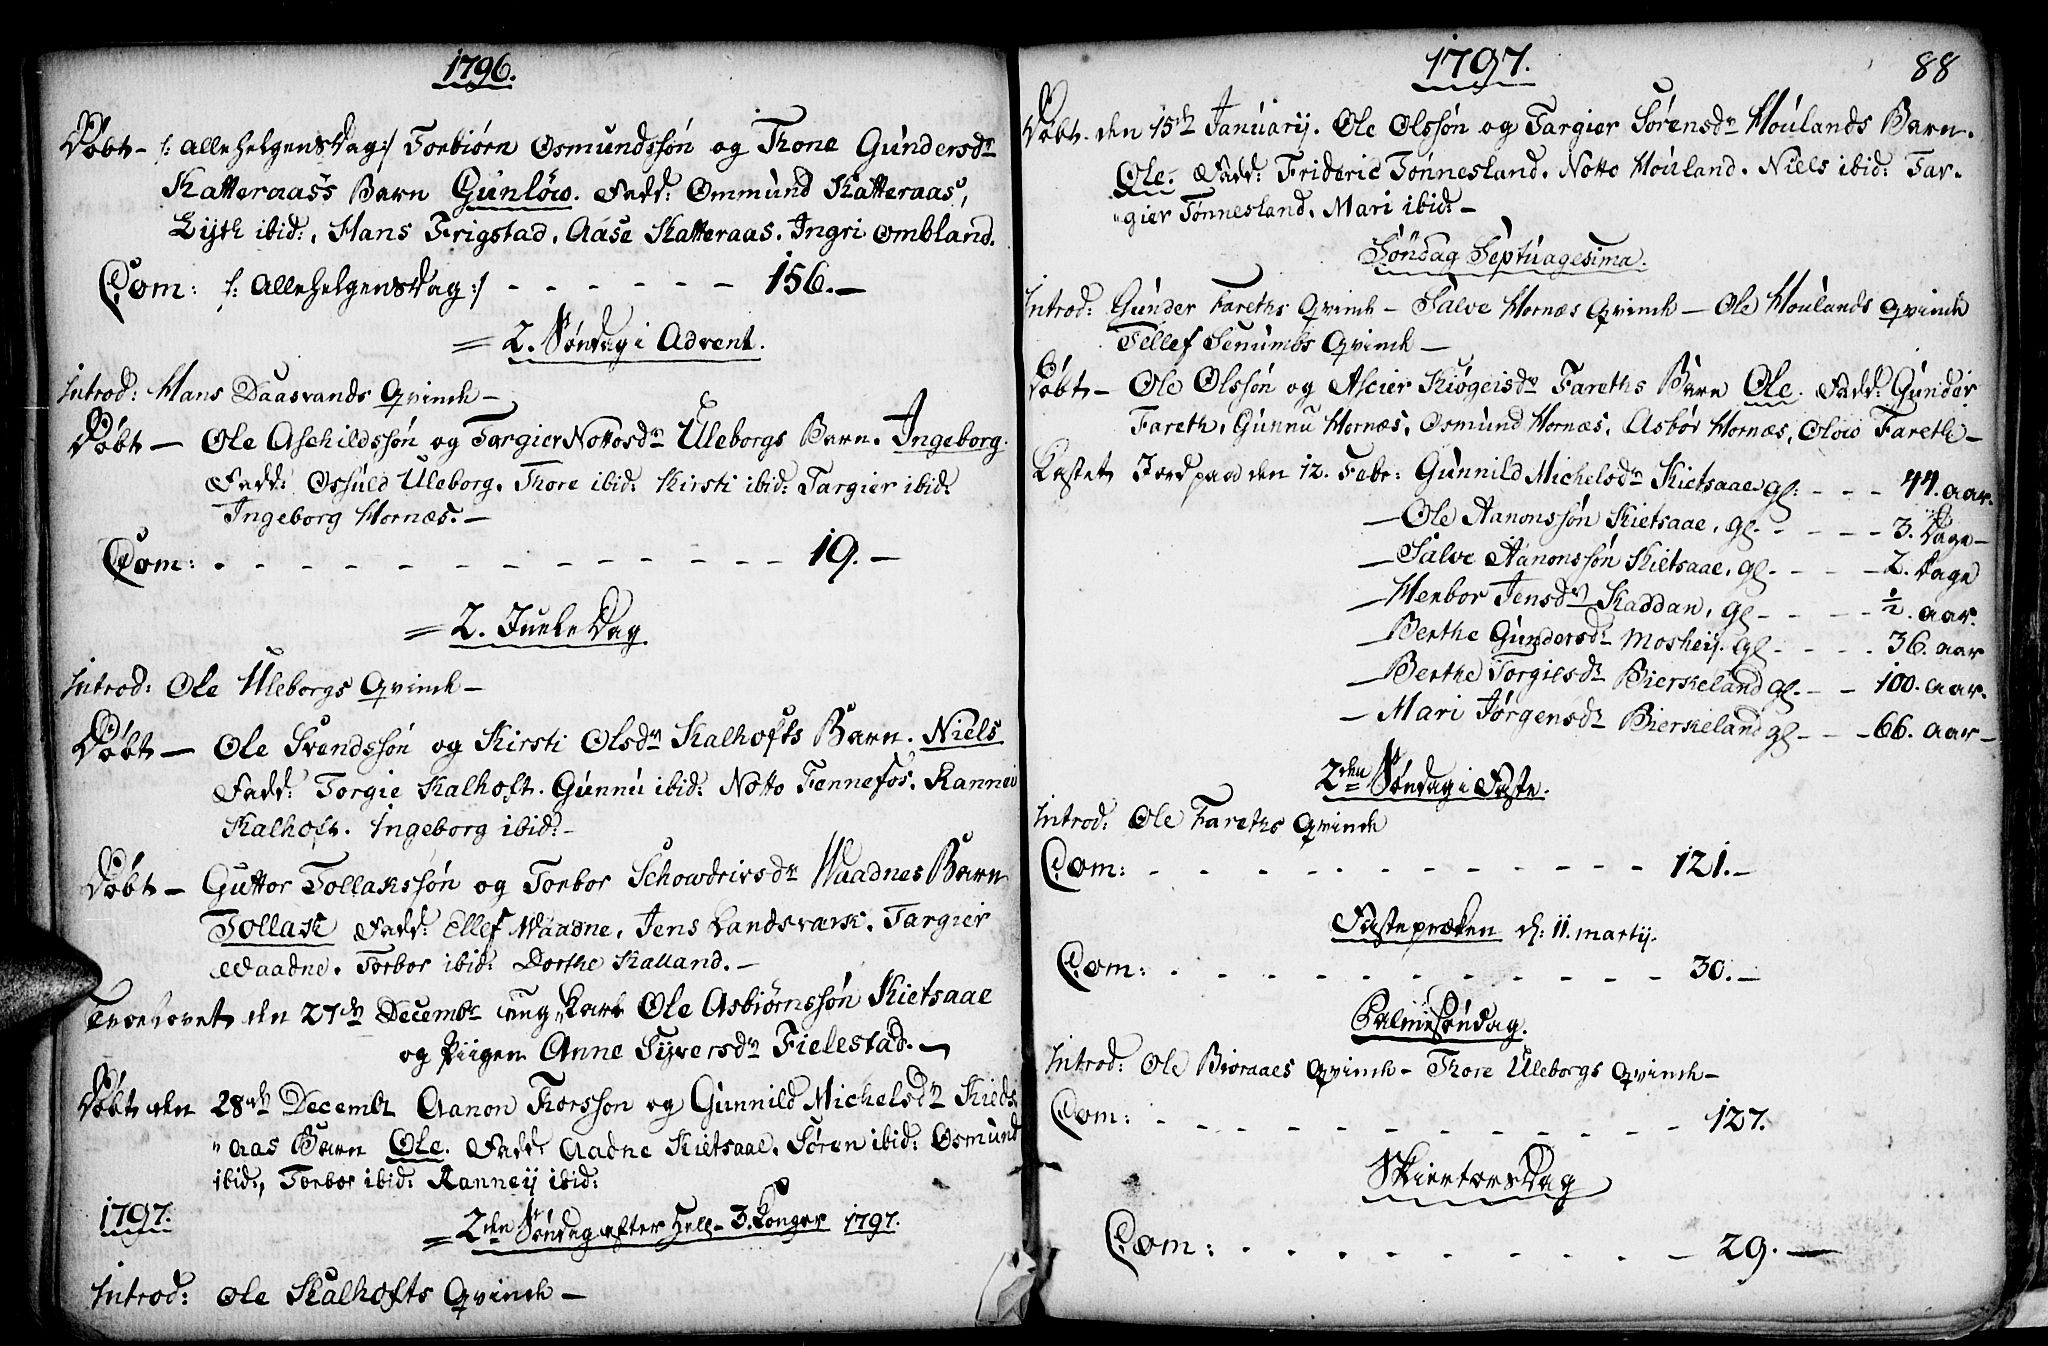 1796.
Døbt - /: allehelgensdag:/ Torbiørn Osmundssøn og Thone Gundersdr
Katteraas's Barn Gunløw. Fadd: Ommund Katteraas,
Zyth ibid:, Hans Frigstad, Aase Katteraas, Ingri Ombland.
Com: /: allehelgensdag:/ - - - - - - 156. -
= 2. Søndag i Advent.
Introd: Hans Daasvands Qvinde -
Døbt - Ole Aschildssøn og Targier Nottosdr Uleborgs Barn. Ingeborg.
Fadd: Ossuld Uleborg, Thore ibid: Kirsti ibid: Targier ibid:
Ingeborg Hornæs. -
Com: - - - - - - - - - - - 19. -
= 2. Juele Dag
Introd: Ole Uleborgs Qvinde -
Døbt - Ole Svendssøn og Kirsti Olsdr Kalhofts Barn. Niels
Fadd: Torgie Kalhoft. Gunnu ibid: Notto Fennefos, Rannei
Kalhoft. Ingeborg ibid: -
Døbt - Guttor Tollakssøn og Torbor Schowdrivsdr Waadnes Barn
Tollak Fadd: Ellef Waadne, Jens Landsværk, Targier
Waadne. Torbor ibid: Dorthe Kalland. -
Troelovet den 27de Decembr ung Karl Ole Asbiørnssøn Kietsaae
og Piigen Anne Syversdr Fielestad. -
Døbt den 28de Decembr Aanon Thorsson og Gunnild Michelsdr Kieds-
"aas Barn Ole. Fadd: Aadne Kietsaae. Søren ibid: Osmund
ibid:, Torbor ibid: Ranneij ibid:
1797. = 2den Søndag efter Hell- 3. Konger 1797.
Introd: Ole Kalhofts Qvinde -
1797. 88
Døbt. den 15de Januarij. Ole Olssøn og Targier Sørensdr Houlands Barn.
Ole. Fadd: Frideric Tønnesland. Notto Houland. Niels ibid: Tar-
"gier Tønnesland, Mari ibid: -
Søndag Septuagesima.
Introd: Gunder Fareths Qvinde - Salve Hornæs Qvinde - Ole Houlands Qvinde
Tellef Senumbs Qvinde -
Døbt - Ole Olssøn og Ascier Kiøgeisdr Fareths Barn Ole. Fadd: Gunder
Fareth, Gunnu Hornæs, Osmund Hornæs, Asbør Hornæs, Olow Fareth -
Kastet Jord paa den 12. Febr: Gunnild Michelsdr Kietsaae gl: - - - 44. aar.
- Ole Aanonssøn Kietsaae, gl - - - - - 3. Dage -
- Salve Aanonssøn Kietsaae, gl - - - - 2. Dage
- Herbor Jensdr Kaddan, gl - - - - - 1/2. aar.
- Berthe Gundersdr Mosheij. gl - - - - 36. aar
- Berthe Torgilsdr Bierkeland gl. - - - 100. aar.
- Mari Jørgensdr Bierkeland gl - - - 66. aar -
2den Søndag i Faste.
Introd: Ole Fareths Qvinde
Com: - - - - - - - - - - - - 121. -
Fastepræken d: 11. martij.
Com: - - - - - - - - - - - 30. -
Palmesøndag.
Introd: Ole Bioraaes Qvinde - Thore Uleborgs Qvinde -
Com: - - - - - - - - - - - - 127.
Skiertorsdag
Com: - - - - - - - - - - 29. -